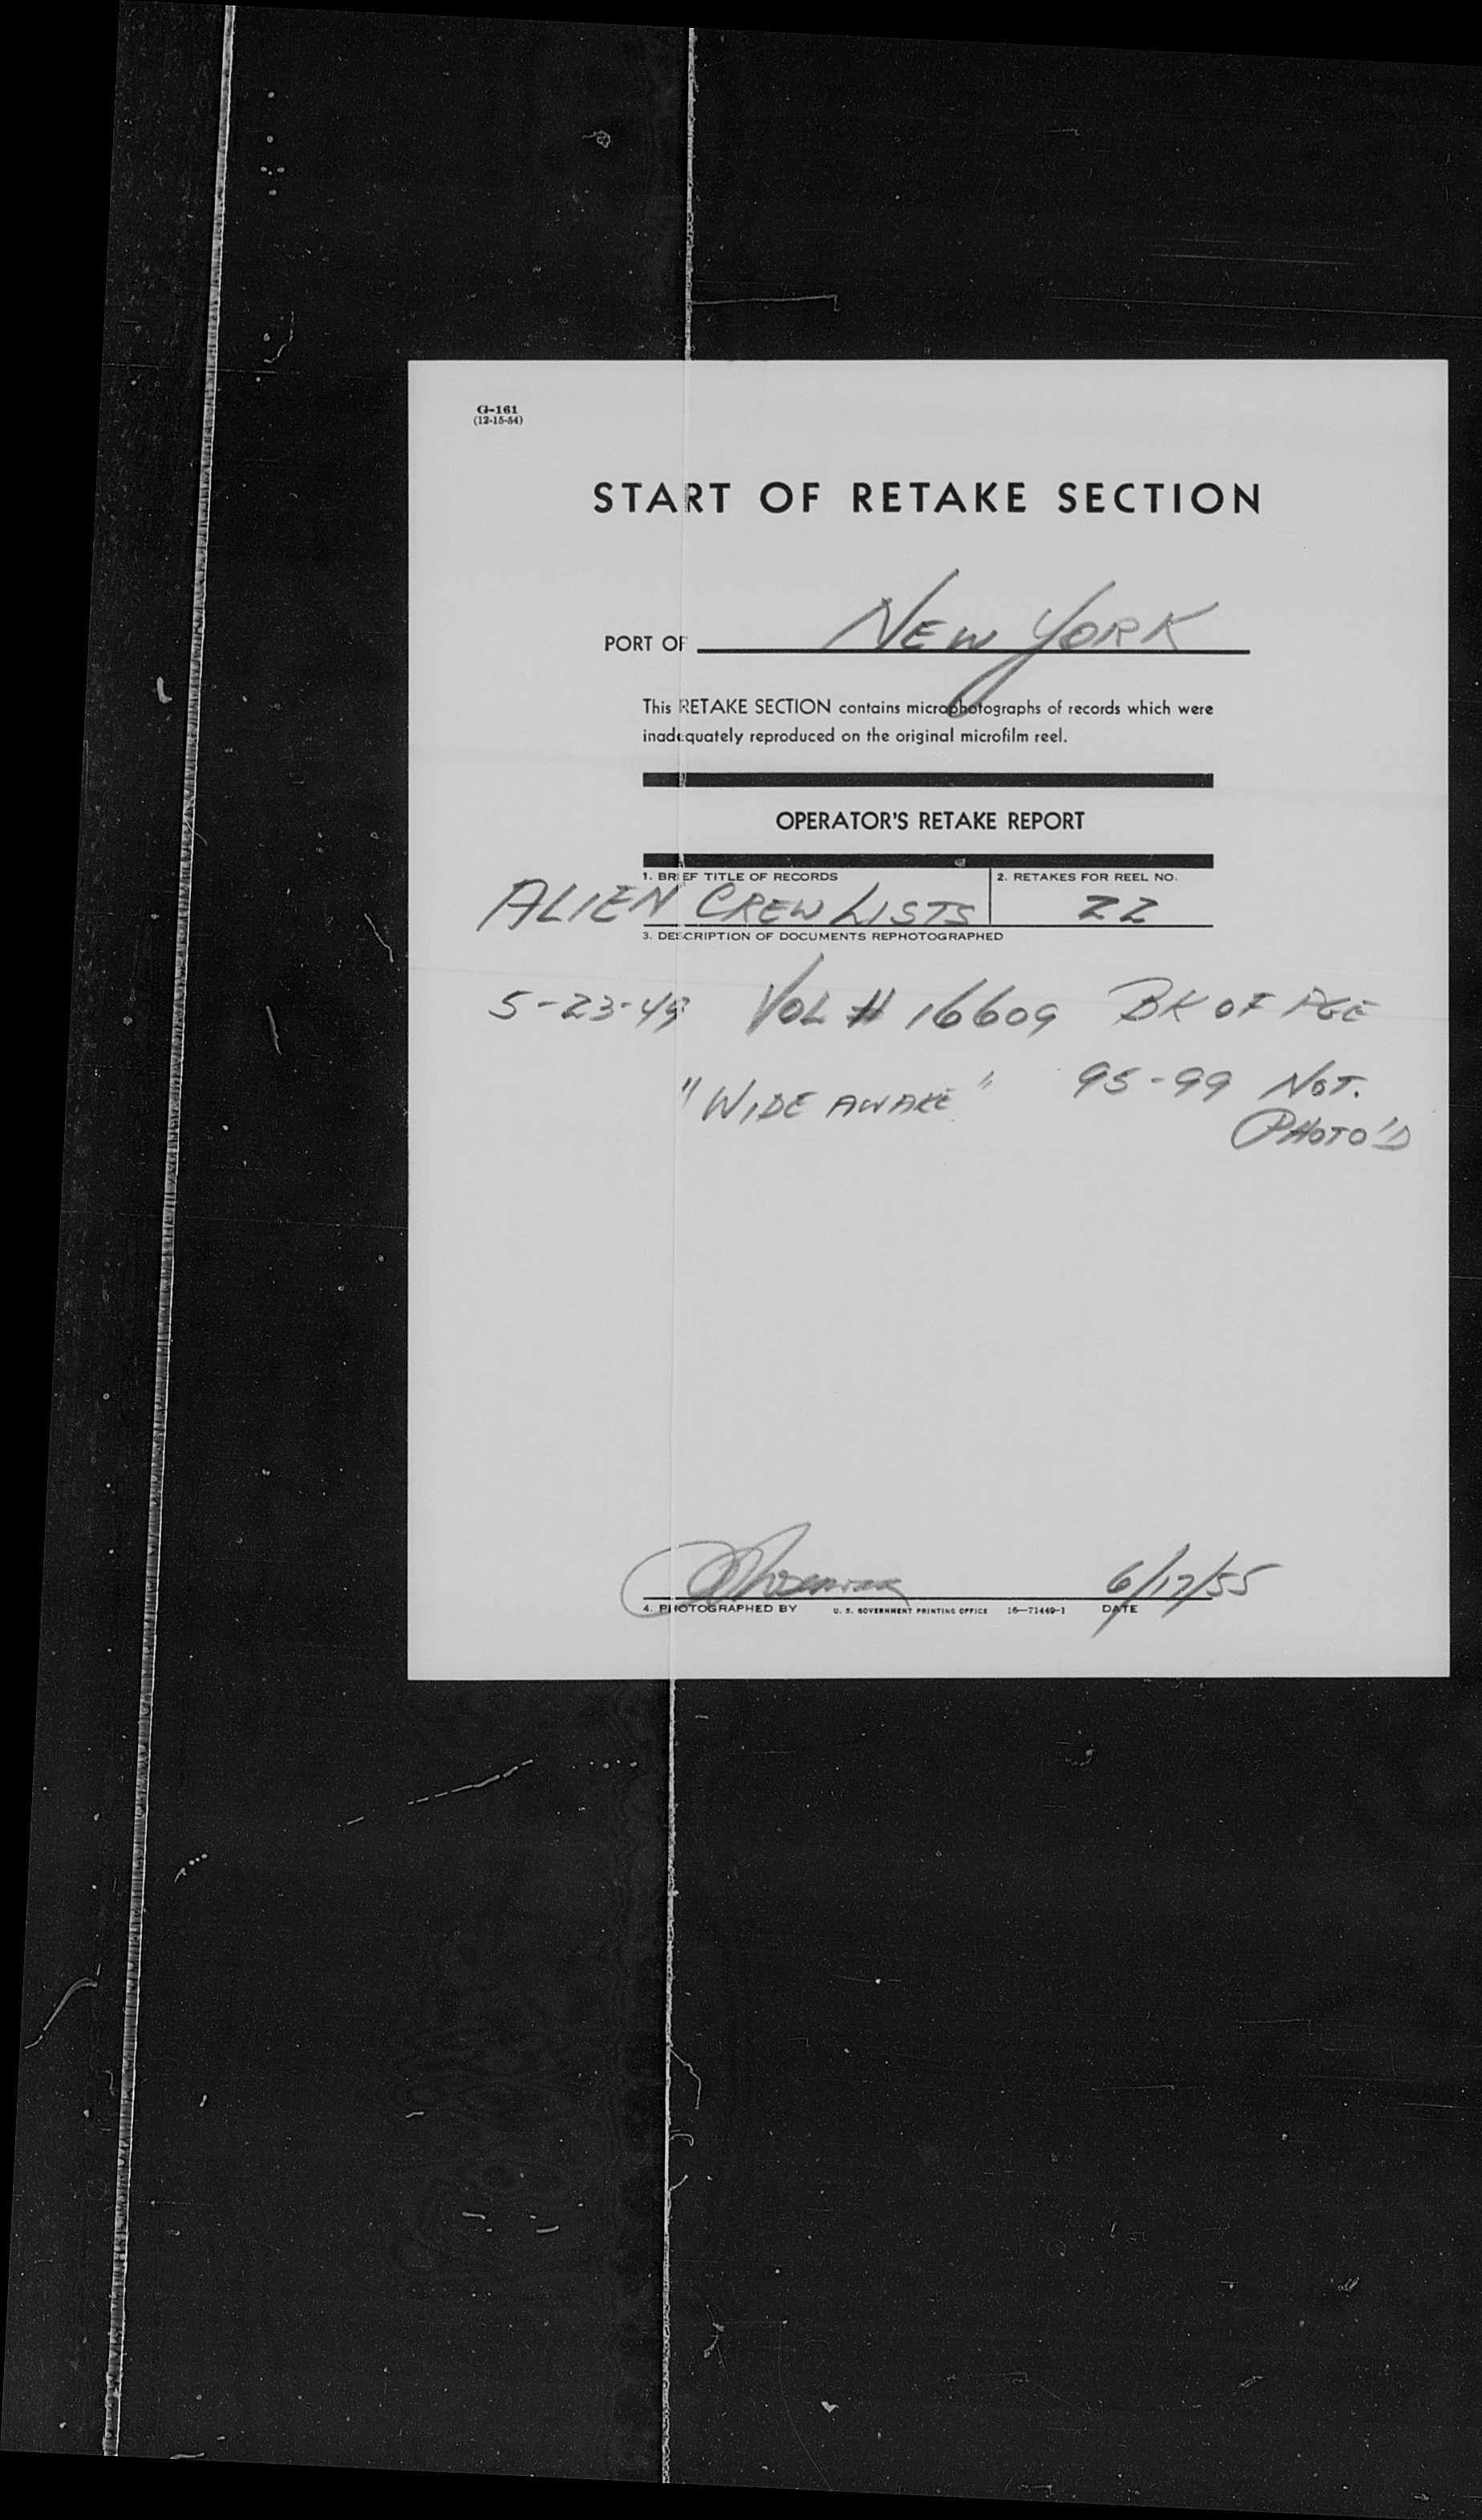 G-161
(12-15-54)
START OF RETAKE SECTION
PORT OF NEW YORK
This RETAKE SECTION contains microphotographs of records which were
inadequately reproduced on the original microfilm reel.
OPERATOR'S RETAKE REPORT
1. BRIEF TITLE OF RECORDS 2. RETAKES FOR REEL NO.
ALIEN CREW LISTS 22
3. DESCRIPTION OF DOCUMENTS REPHOTOGRAPHED
5-23-49 VOL # 16609 BK OF PGE
"WIDE AWAKE" 95-99 NOT.
PHOTO'D
6/17/55
4. PHOTOGRAPHED BY U. S. GOVERNMENT PRINTING OFFICE 16—71449-1 DATE